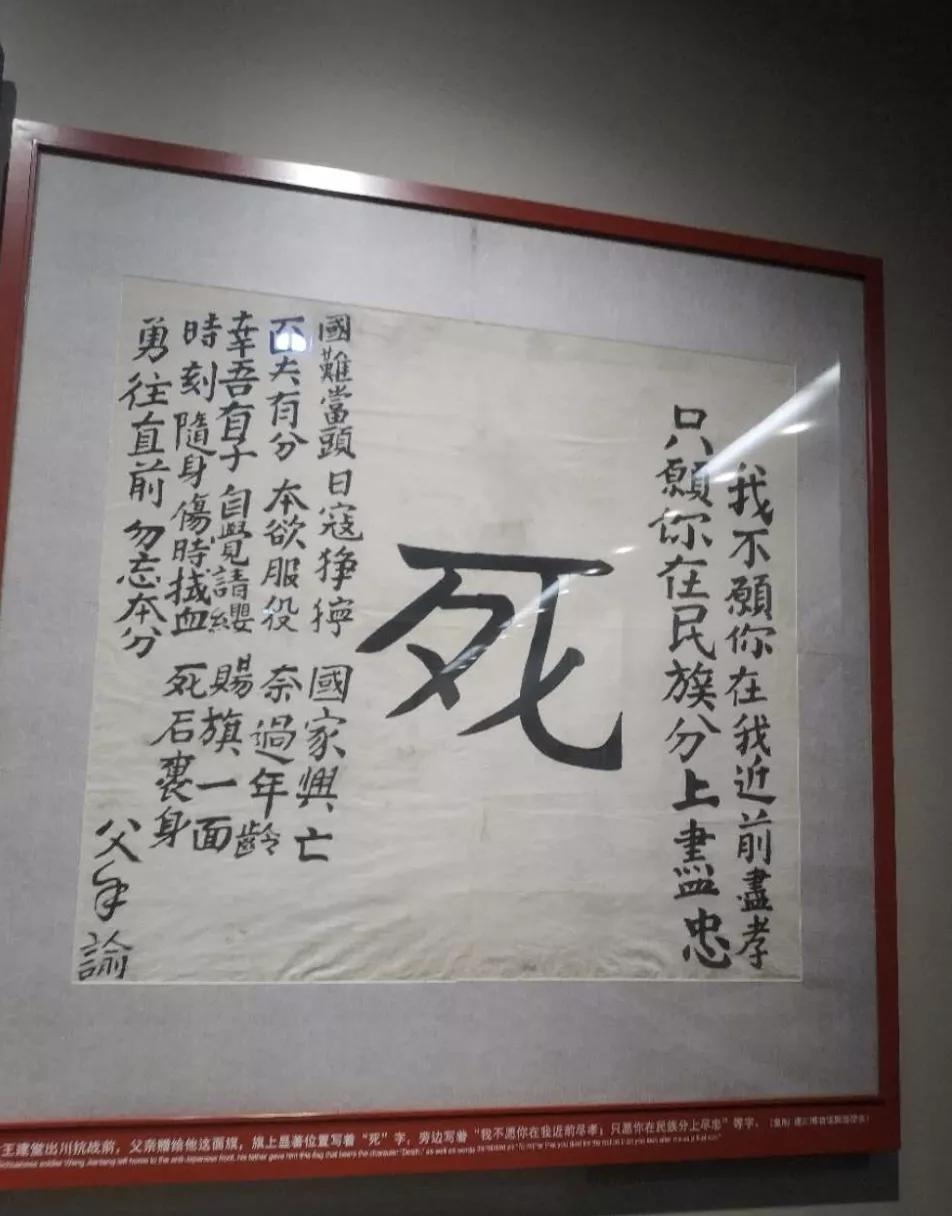 我不願你在我近前盡孝
只願你在民族分上盡忠
死
國難當頭 日寇猙獰 國家興亡
匹夫有分 本欲服役 奈過年齡
幸吾有子 自覺請纓 賜旗一面
時刻隨身 傷時拭血 死后裹身
勇往直前 勿忘本分
父手諭
王建堂出川抗战前，父亲赠给他这面旗，旗上显著位置写着“死”字，旁边写着“我不愿你在我近前尽孝；只愿你在民族分上尽忠”等字。
soldier Wang Jiantang left home to the anti-Japanese front, his father gave him this flag that bears the character "Death," as well as words